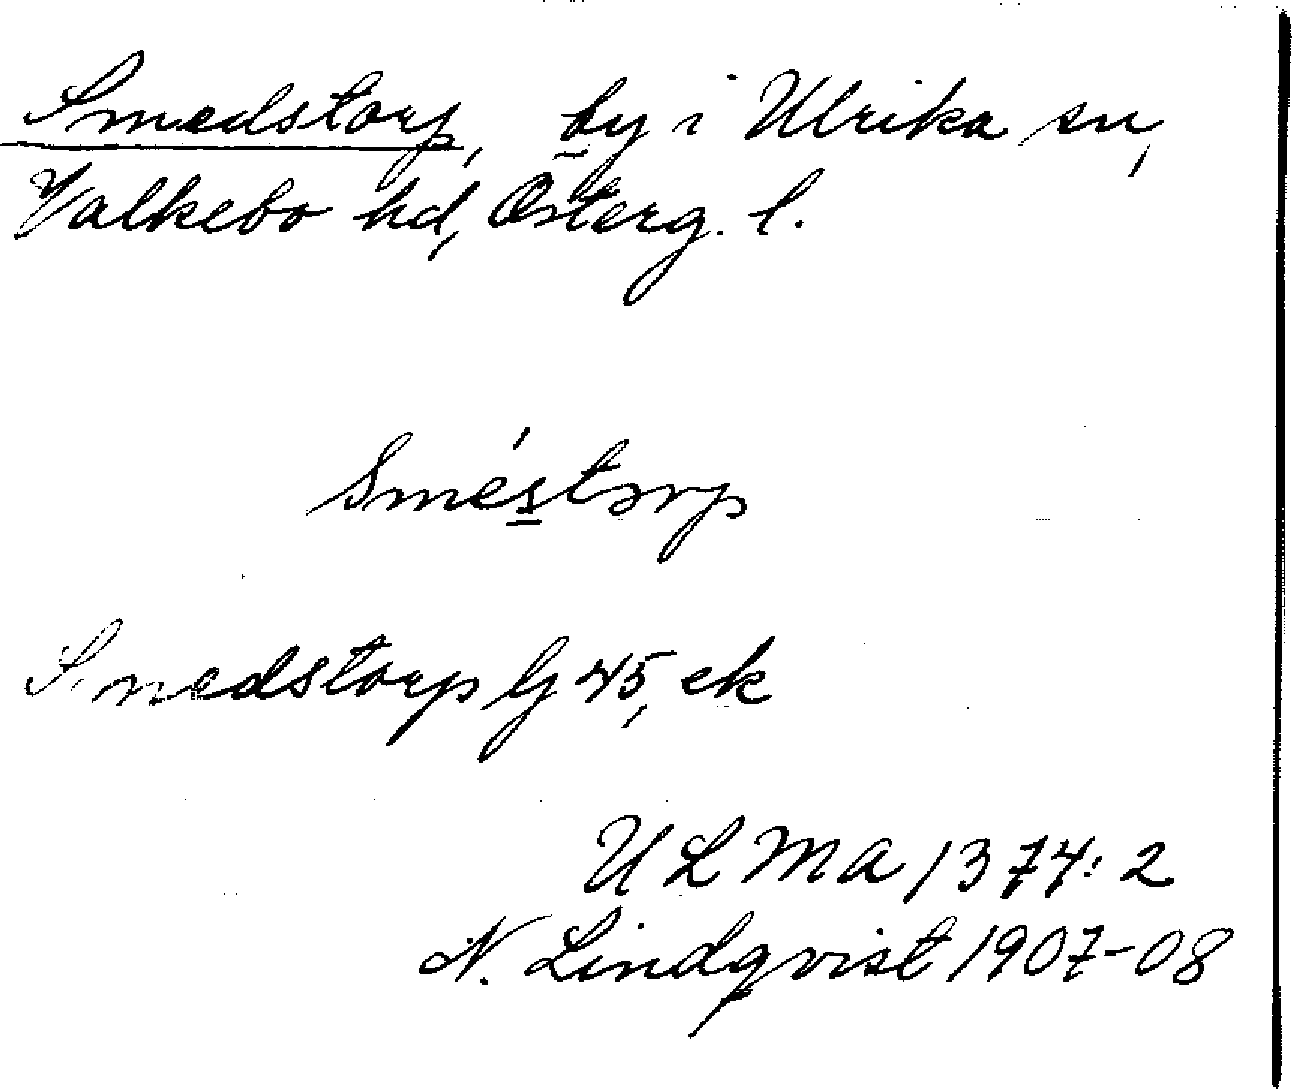 Smedstorp, by i Ulrika sn,
Valkebo hd, Österg. l.
Sméstorp
Smedstorp G 45, ek
ULMA 1374:2
N. Lindqvist 1907-08